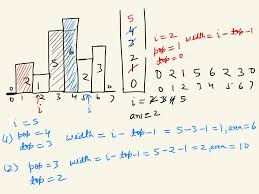 5
4
3
2
1
0
i = 2
pop = 1 width = i - top - 1
top = 0
2 1 5 6 2 3
0 1 2 3 4 5 6 7
i i
0 2 1 5 6 2 3 0
0 1 2 3 4 5 6 7
i = 5
i = 2 3 4 5
ans = 2
(1) pop = 4 width = i - top - 1 = 5 - 3 - 1 = 1, area = 6
top = 3
(2) pop = 3 width = i - top - 1 = 5 - 2 - 1 = 2, area = 10
top = 2